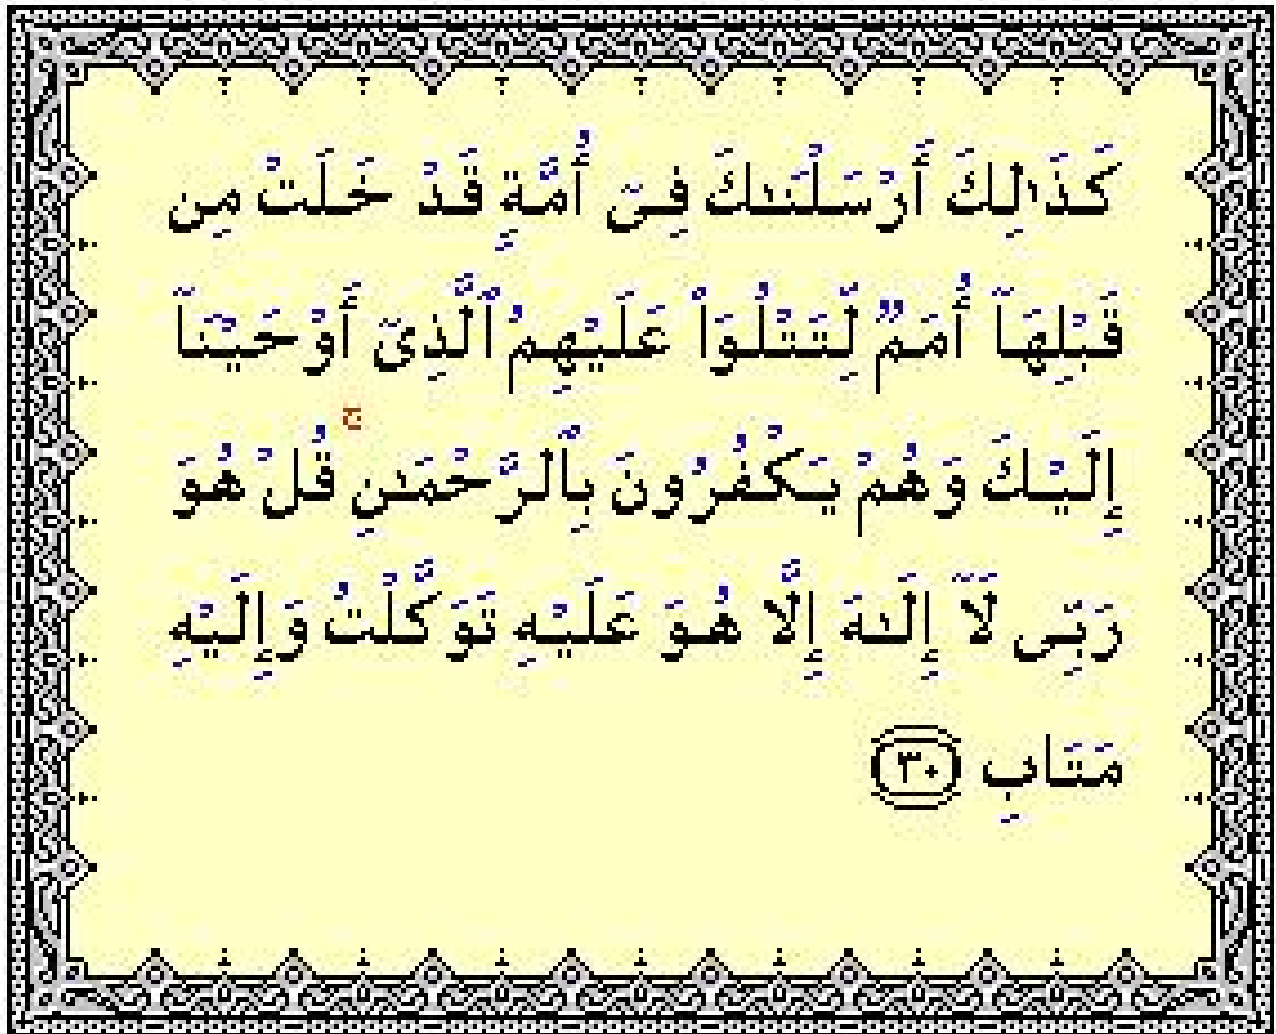 كَذَٰلِكَ أَرْسَلْنَٰكَ فِىٓ أُمَّةٍ قَدْ خَلَتْ مِن
قَبْلِهَآ أُمَمٌ لِّتَتْلُوَا۟ عَلَيْهِمُ ٱلَّذِىٓ أَوْحَيْنَآ
إِلَيْكَ وَهُمْ يَكْفُرُونَ بِٱلرَّحْمَٰنِ ۚ قُلْ هُوَ
رَبِّى لَآ إِلَٰهَ إِلَّا هُوَ عَلَيْهِ تَوَكَّلْتُ وَإِلَيْهِ
مَتَابِ ٣٠